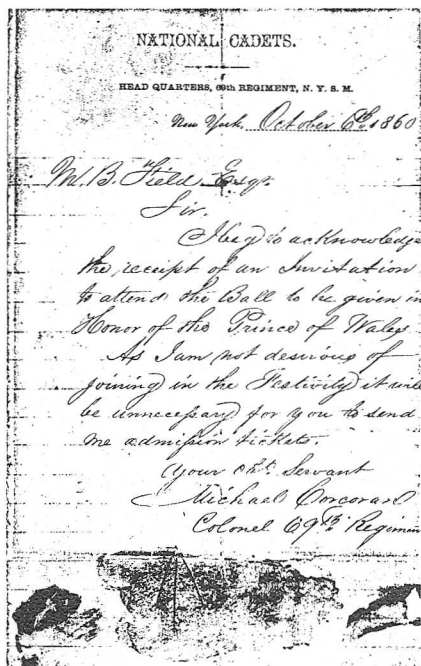 NATIONAL CADETS.
HEAD QUARTERS, 69th REGIMENT, N. Y. S. M.
New York, October 6th 1860
M. B. Field Esqr.
Sir.
I beg to acknowledge
the receipt of an Invitation
to attend the Ball to be given in
Honor of the Prince of Wales.
As I am not desirous of
joining in the Festivity it will
be unnecessary for you to send
me admission tickets.
Your obt. Servant
Michael Corcoran
Colonel 69th Regimen